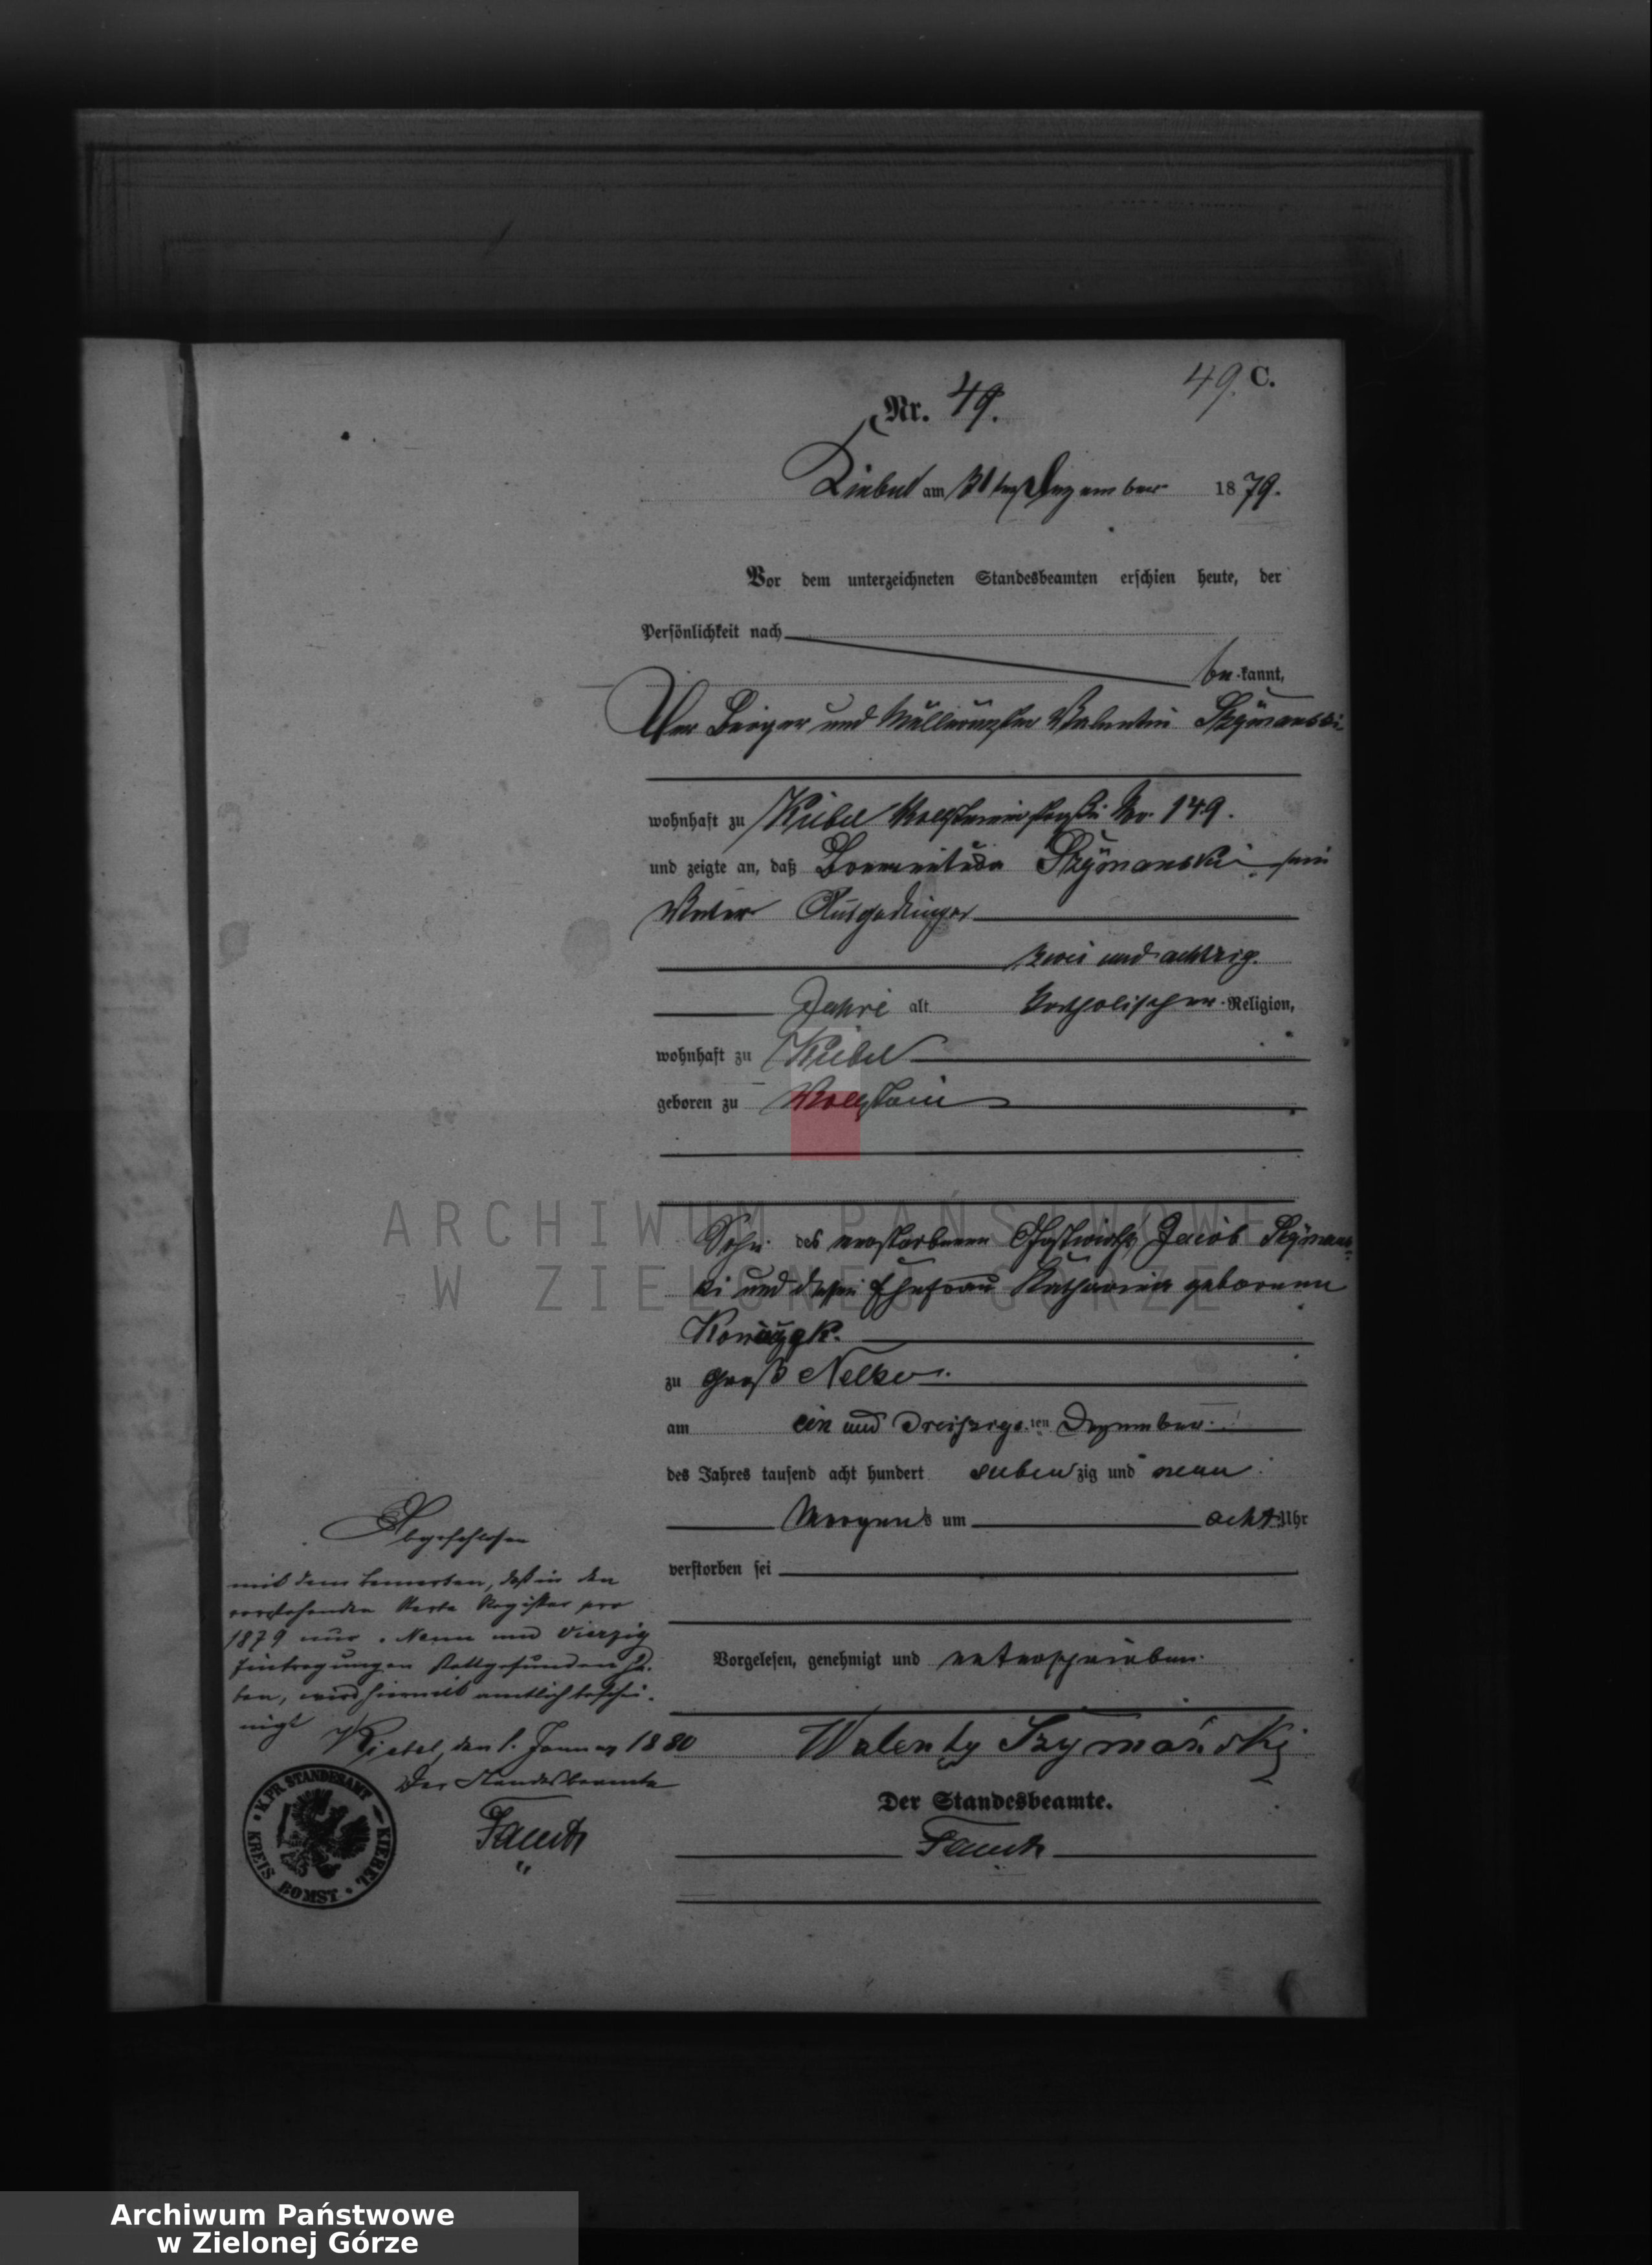 49. C.
Nr. 49.
Kiebel am 31ten Dezember 1879.
Vor dem unterzeichneten Standesbeamten erschien heute, der
Persönlichkeit nach
be kannt,
Der Bürger und Valentin Szÿmanski
wohnhaft zu Kiebel Wollsteinerstraße No. 149.
und zeigte an, daß Szÿmanski sein
Vater Ausgedinger
zwei und achtzig
Jahre alt katholischer Religion,
wohnhaft zu Kiebel
geboren zu Wollstein
ARCHIWUM PAŃSTWOWE
W ZIELONEJ GÓRZE
Sohn des verstorbenen Jacob Szÿmans-
ki und dessen Ehefrau Katharina geborenen
zu Groß Nelke
am ein und dreißigs ten Dezember
des Jahres tausend acht hundert sieben zig und neun
Morgens um acht Uhr
verstorben sei
Vorgelesen, genehmigt und unterschrieben.
Walenty Szymański
Der Standesbeamte.
Abgeschlossen
mit dem bemerken, daß in den
vorstehenden Register pro
1879 nur Neun und Vierzig
Eintragungen stattgefunden ha-
ben, wird hiermit amtlich beschei-
nigt
Kiebel, den 1. Januar 1880
Der Standesbeamte
K. PR. STANDESAMT KIEBEL
KREIS BOMST
Archiwum Państwowe
w Zielonej Górze